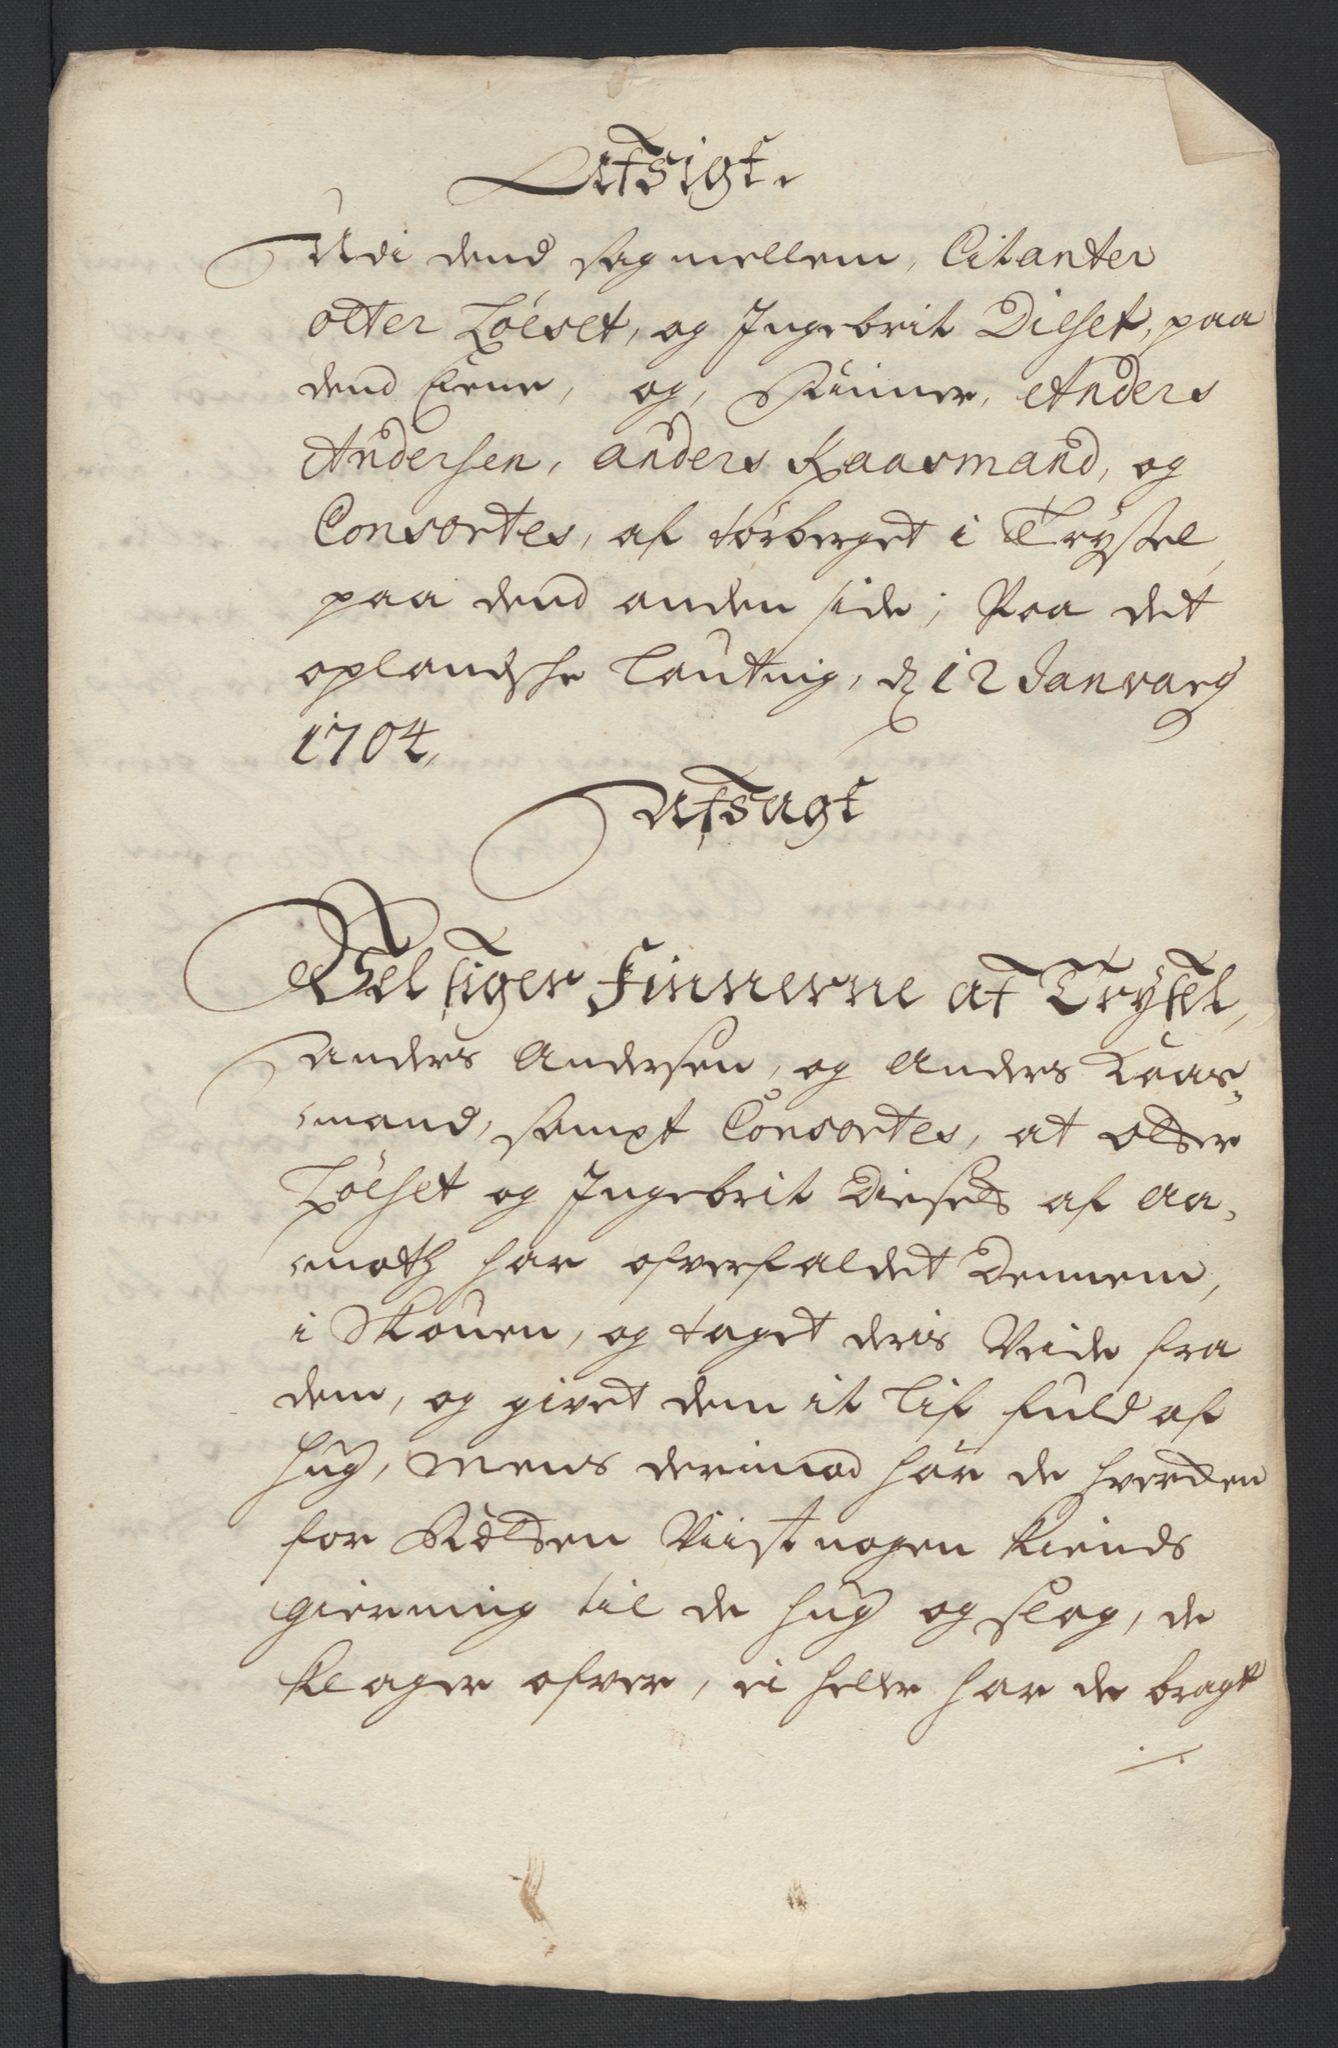 Afsigt.
Udi dend sag mellem, Citanter
Otter Løvset, og Ingebrit Dieset, paa
dend Eene, og, Finner, Anders
Andersen, anders Kaasmand, og
Consortes, af Tørberget i Trysel,
paa dend anden side; Paa det
oplandske Laugting, d 12 Janvarij
1704,
Afsagt
Vel siger Finnerne af Trysel,
Anders Andersen, og Anders Kaas-
mand, sampt Consortes, at Otter
Løfset og Ingebrit Diesets af Aa-
moth har ofverfaldet Dennem,
i Skouen, og taget deris Veide fra
dem, og givet dem it Lif fuld af
hug, Mens derimod har de hverken
for Retten Viist nogen Kiends
gierning til de hug og slag, de
Klager ofver, ei heller har de bragt